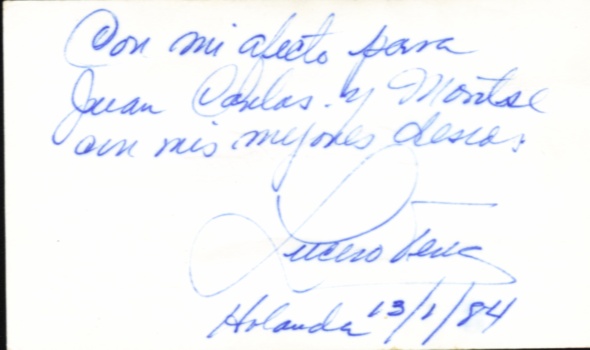 Con mi afecto para
Juan Carlos y Montse
con mis mejores deseos
Lucero Tena
Holanda 13/1/84